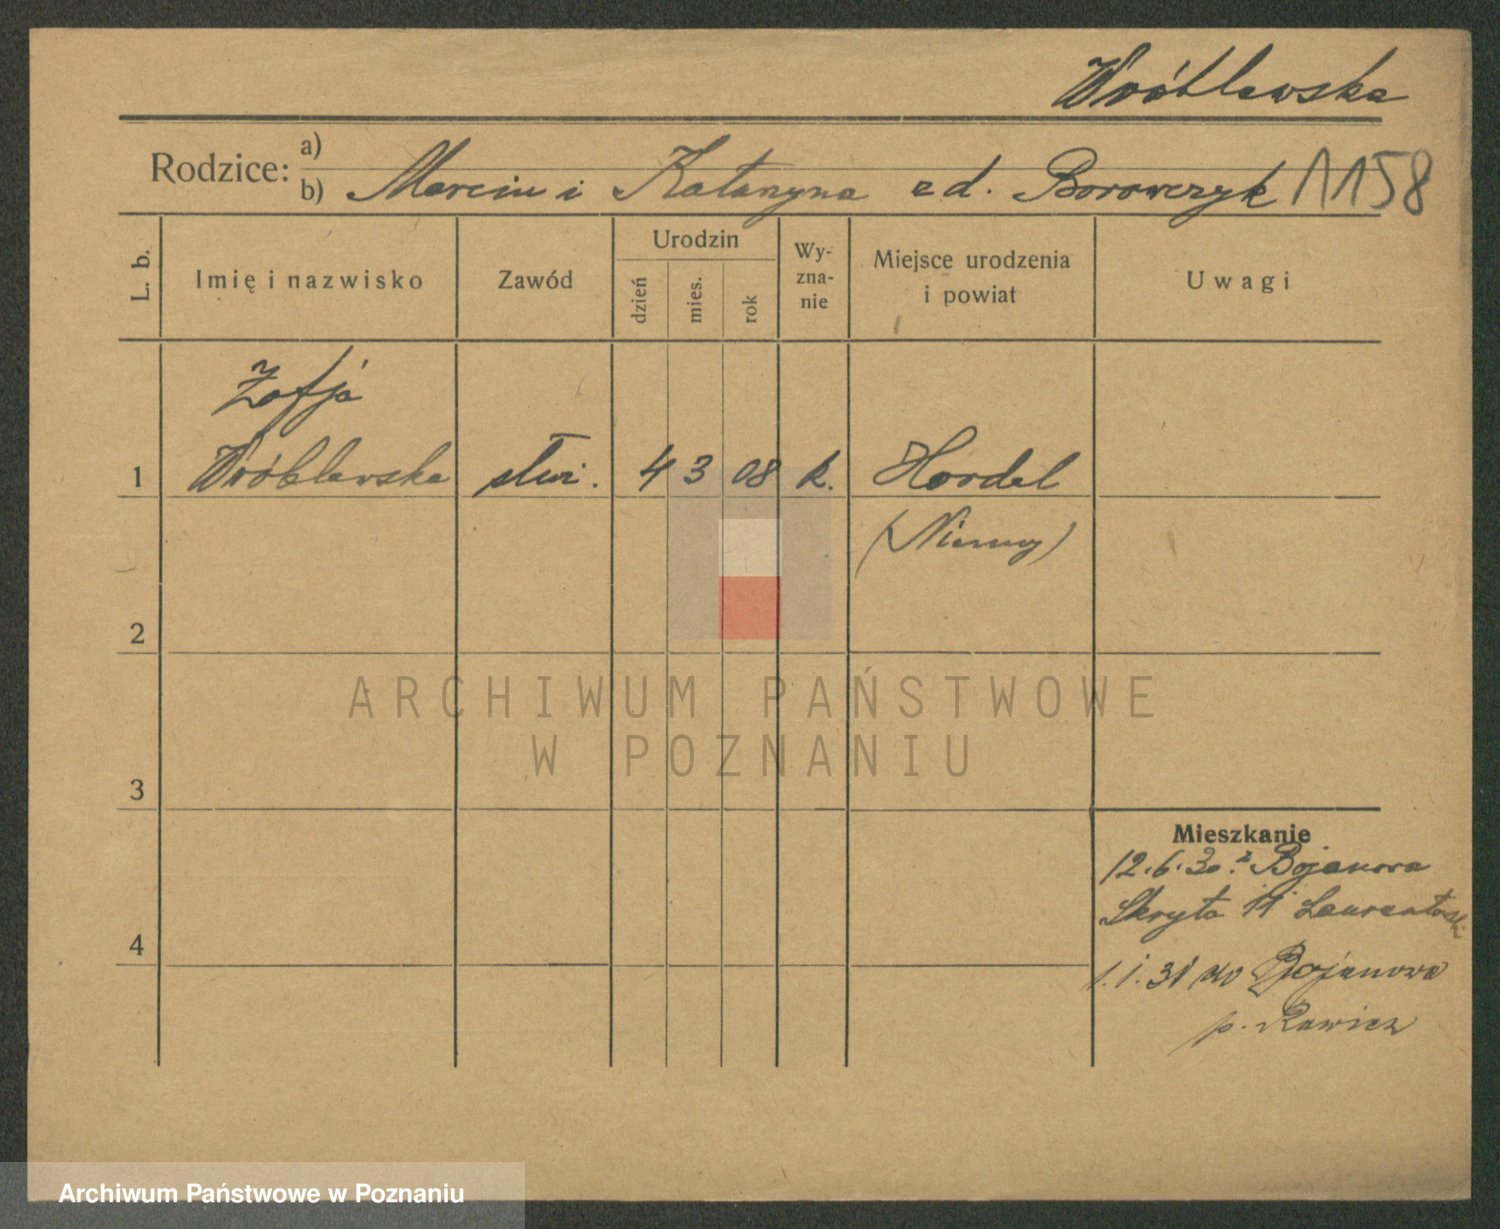 Wróblewska
Rodzice: a)
b) Marcin i Katarzyna zd. Borowczyk 1158
L. b.
Imię i nazwisko
Zawód
Urodzin
dzień
mies.
rok
Wy-
zna-
nie
Miejsce urodzenia
i powiat
Uwagi
Zofja
1 Wróblewska służ. 4 3 08 k. Hordel
(Niemcy)
2
ARCHIWUM PAŃSTWOWE
W POZNANIU
3
Mieszkanie
12.6.30. z Bojanowa
Skryta 11
4
1.1.31 do Bojanowa
p. Rawicz
Archiwum Państwowe w Poznaniu